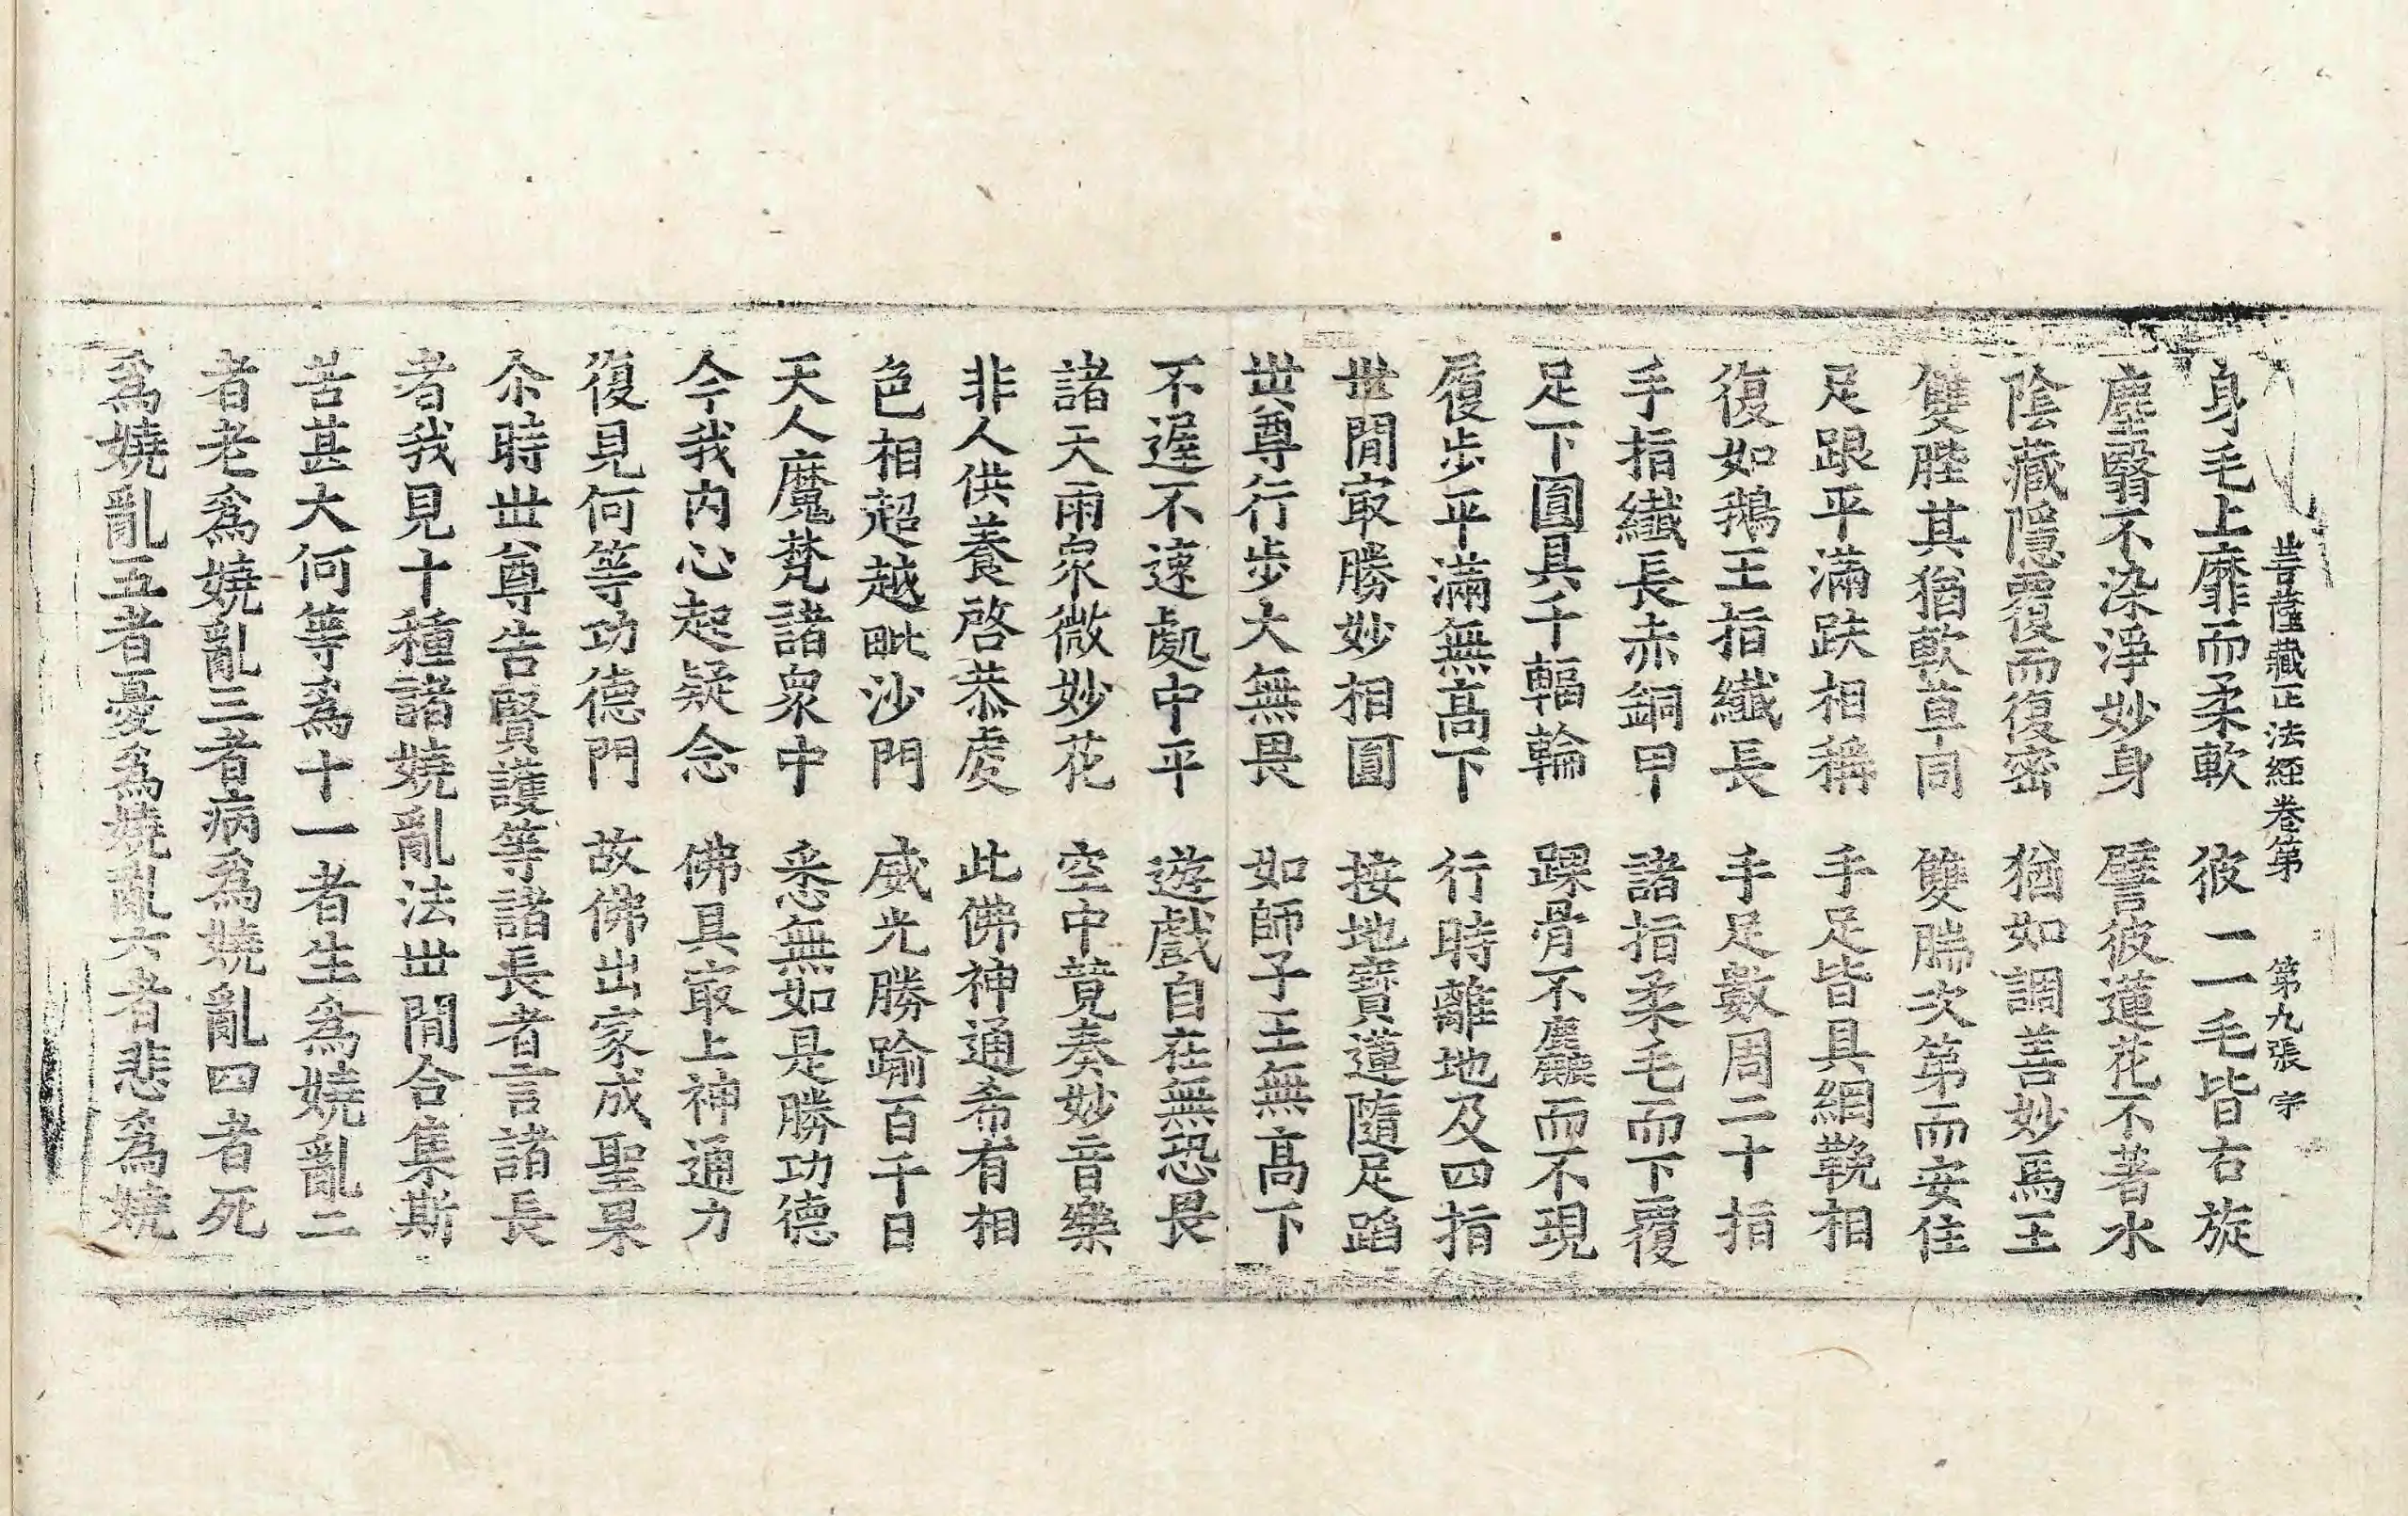 菩薩藏正法經卷第　第九張　宇
身毛上靡而柔軟　彼二二毛皆右旋
塵翳不染淨妙身　譬彼蓮花不著水
陰藏隱覆而復密　猶如調善妙馬王
雙䏶其猶軟草同　雙腨次第而安住
足跟平滿趺相稱　手足皆具網鞔相
復如鵝王指纖長　手足數周二十指
手指纖長赤銅甲　諸指柔毛而下覆
足下圓具千輻輪　踝骨不麤而不現
履步平滿無高下　行時離地及四指
世間㝡勝妙相圓　按地寶蓮隨足蹈
世尊行步大無畏　如師子王無高下
不遲不速處中平　遊戲自在無恐畏
諸天雨衆微妙花　空中競奏妙音樂
非人供養啓恭虔　此佛神通希有相
色相超越毗沙門　威光勝踰百千日
天人魔梵諸衆中　悉無如是勝功德
今我内心起疑念　佛具㝡上神通力
復見何等功德門　故佛出家成聖果
尒時世尊告賢護等諸長者言諸長
者我見十種諸嬈亂法世間合集斯
苦甚大何等爲十一者生爲嬈亂二
者老爲嬈亂三者病爲嬈亂四者死
爲嬈亂五者憂爲嬈亂六者悲爲嬈